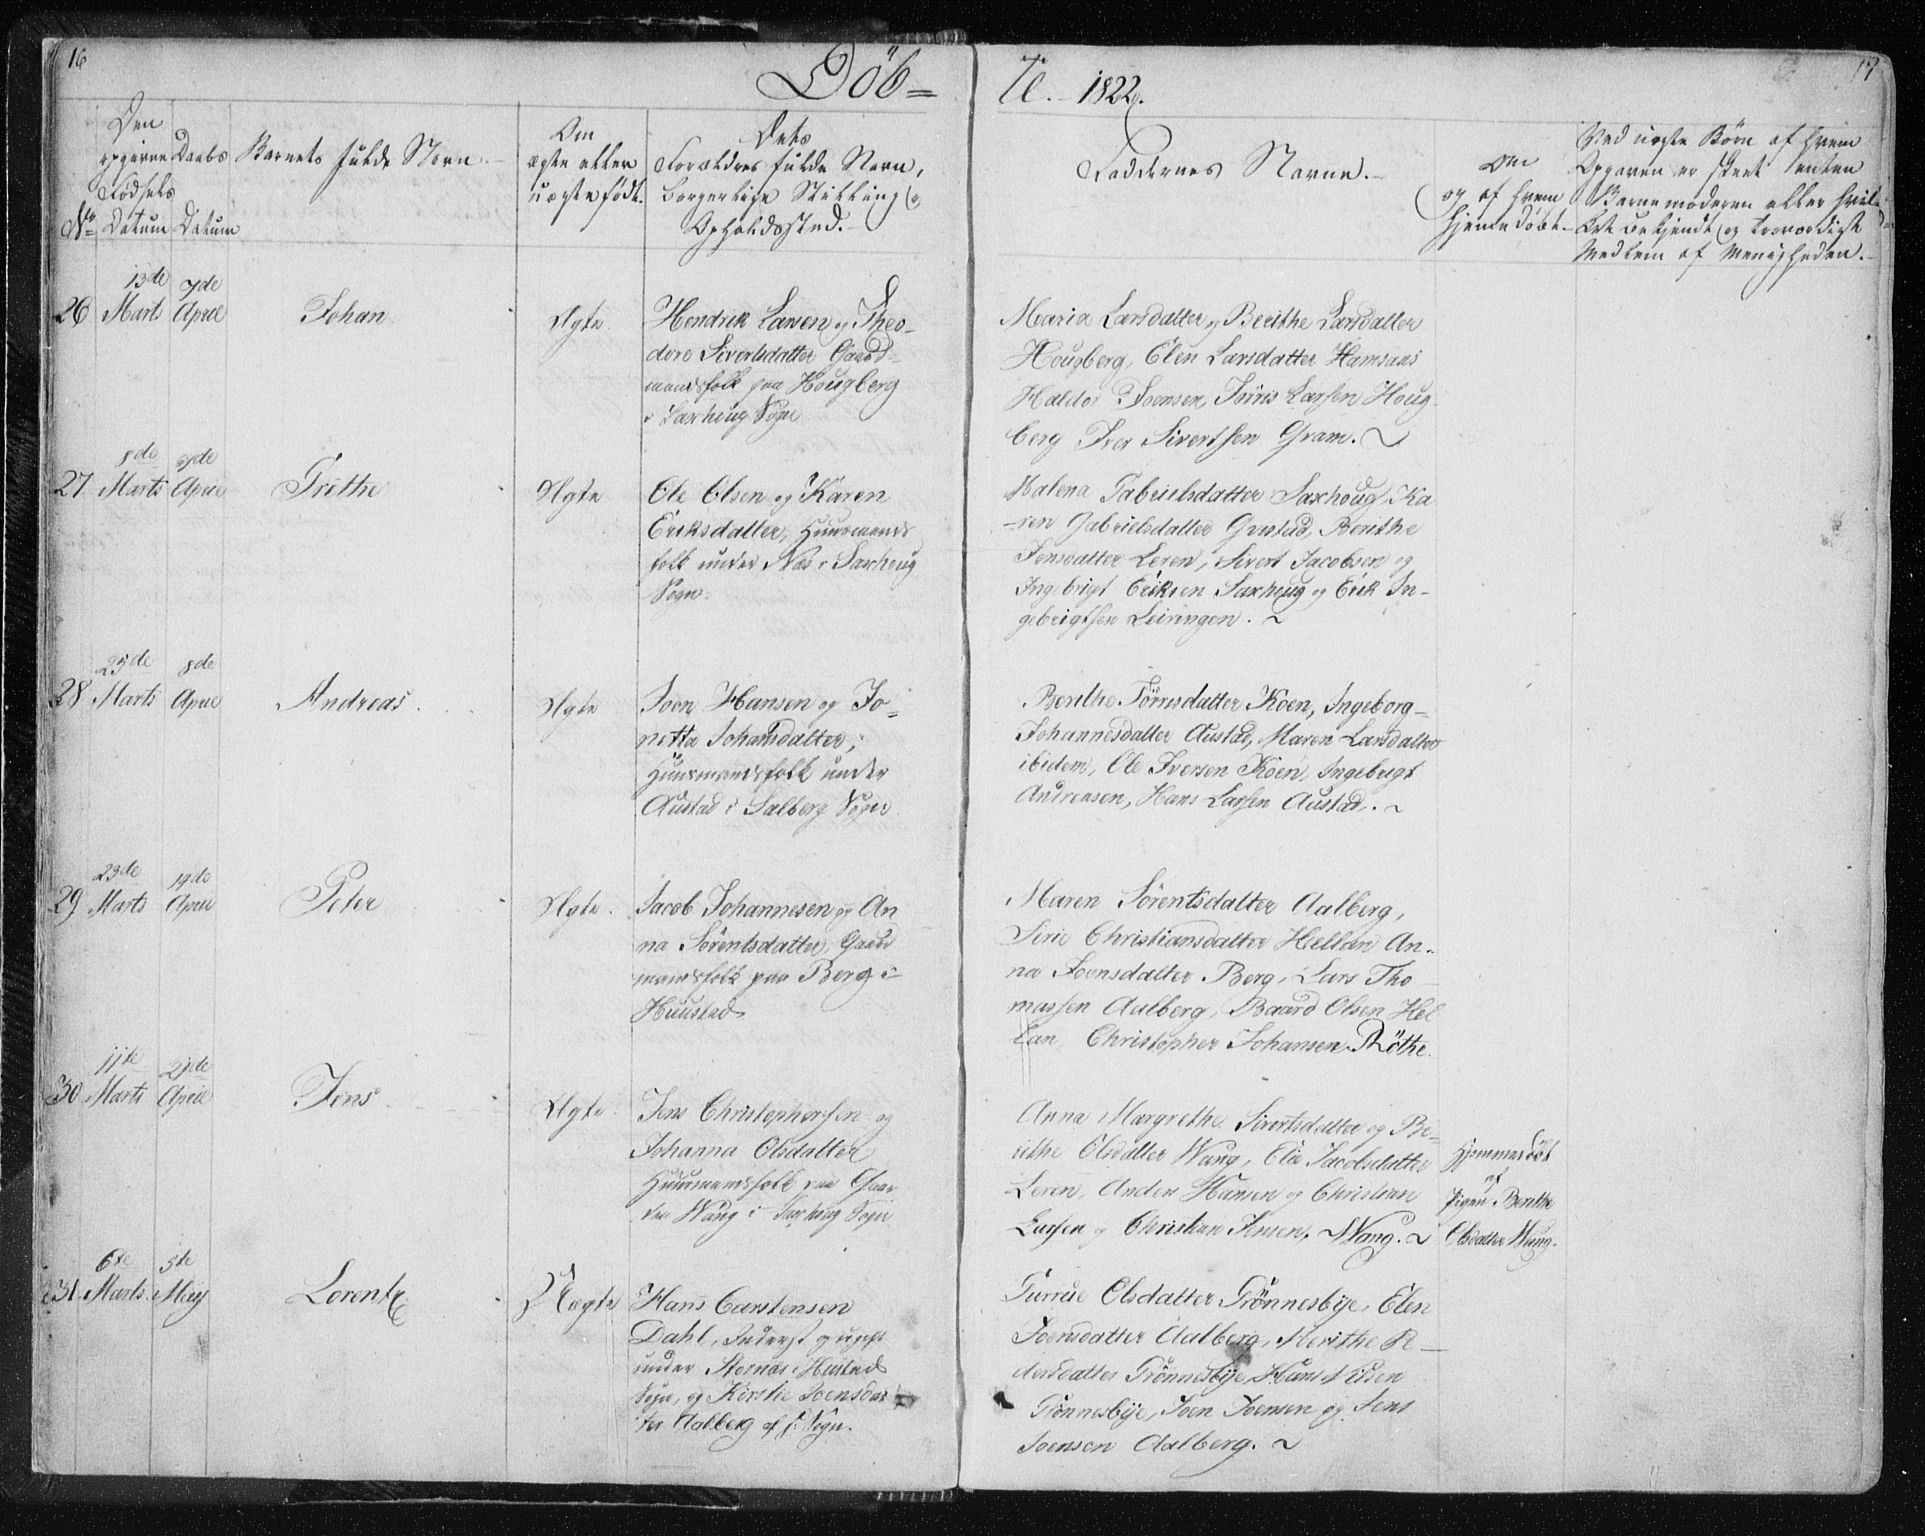 16
Döb=
Te. 1822.
17
Den
opgivne
Fødsels
No Datum
Daabs
Datum
Barnets fulde Navn.
Om
ægte eller
uægte født.
Dets
Forældres fulde Navn,
borgerlige Stilling og
Opholdssted.
Faddernes Navne.
Om
og af hvem
hjemmedøbt.
Ved uægte Børn af hvem
Opgaven er skeet enten
Barnemoderen eller hvil=
ket bekjendt og troværdigt
Medlem af Menigheden.
13de 7de
26 Marts April Johan Ægte
Hendrik Larsen og Theo-
dore Sivertsdatter Gaard-
mandsfolk paa Hougberg
i Saxhoug Sogn
Maria Larsdatter og Berithe Larsdatter
Hougberg, Elen Larsdatter Hamsaas
Haldo Joensen, Joiris Larsen Houg
berg Iver Sivertsen Gram.
8de 7de
27 Marts April Grithe Ægte
Ole Olsen og Karen
Eriksdatter, Huusmands
folk under Næs i Saxhoug
Sogn.
Halena Gabrielsdatter Saxhoug, Ka
-ren Gabrielsdatter Grustad, Berithe
Jensdatter Leren, Sivert Jacobsen og
Ingebrigt Eriksen Saxhoug og Erik In-
gebrigtsen Leiringen.
25de 8de
28 Marts April Andreas Ægte
Joen Hansen og Jo=
netta Johansdatter,
Huusmandsfolk under
Austad i Salberg Sogn
Berithe Törrisdatter Koen, Ingeborg
Johannesdatter Austad, Maren Larsdatter
ibidem, Ole Iversen Koen, Ingebrigt
Andreasen, Hans Larsen Austad.
23de 19de
29 Marts April Peter Ægte
Jacob Johannesen og An
na Sørentsdatter, Gaard
mandsfolk paa Berg i
Huustad
Maren Sørentsdatter Aalberg,
Sirie Christiansdatter Hellan An-
na Joensdatter Berg, Lars Tho
massen Aalberg, Baard Olsen Hel
lan, Christopher Johansen Röthe.
11te 21de
30 Marts April Jens Ægte
Jens Christophersen og
Johanna Olsdatter
Huusmandsfolk paa Gaar
den Wang i Saxhoug Sogn
Anna Margrethe Sivertsdatter og Be-
rithe Olsdatter Wang, Elie Jacobsdatter
Leren, Anders Hansen og Christian
Larsen og Christian Jensen, Wang.
Hjemmedöbt
af
Pigen Berithe
Olsdatter Wang.
6te 5te
31 Marts May Lorentz Uægte
Hans Carstensen
Dahl, Inderst og ugift
under Stornæs i Hustad
Sogn, og Kirstie Joensdat
ter Aalberg af s: Sogn.
Gurrue Olsdatter Grönnesbye, Elen
Joensdatter Aalberg, Merithe P
dersdatter Grönnesbye, Hans Nilsen
Grönnesbye, Joen Joensen og Jens
Joensen Aalberg.